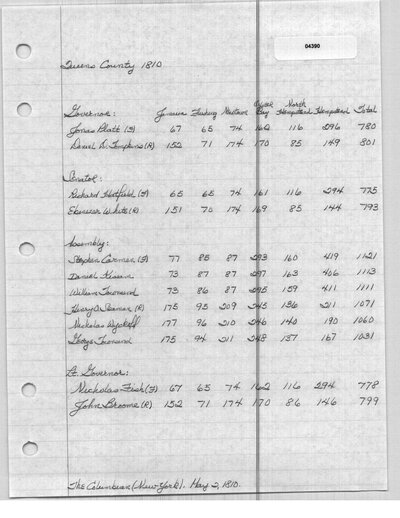 04390
Queens County 1810
Governor: Jamaica Flushing Newtown Oyster Bay North Hempstead Hempstead Total
Jonas Platt (F) 67 65 74 162 116 296 780
Daniel D. Tompkins (R) 152 71 174 170 85 149 801
Senator:
Richard Hatfield (F) 65 65 74 161 116 294 775
Ebenezer White (R) 151 70 174 169 85 144 793
Assembly:
Stephen Carman (F) 77 85 87 293 160 419 1121
Daniel Kissam 73 87 87 297 163 406 1113
William Townsend 73 86 87 295 159 411 1111
Henry O. Seaman (R) 175 95 209 245 136 211 1071
Nicholas Wyckoff 177 96 210 246 140 190 1060
George Townsend 175 94 211 248 137 167 1031
Lt. Governor:
Nicholas Fish (F) 67 65 74 162 116 294 778
John Broome (R) 152 71 174 170 86 146 799
The Columbian (New York). May 2, 1810.